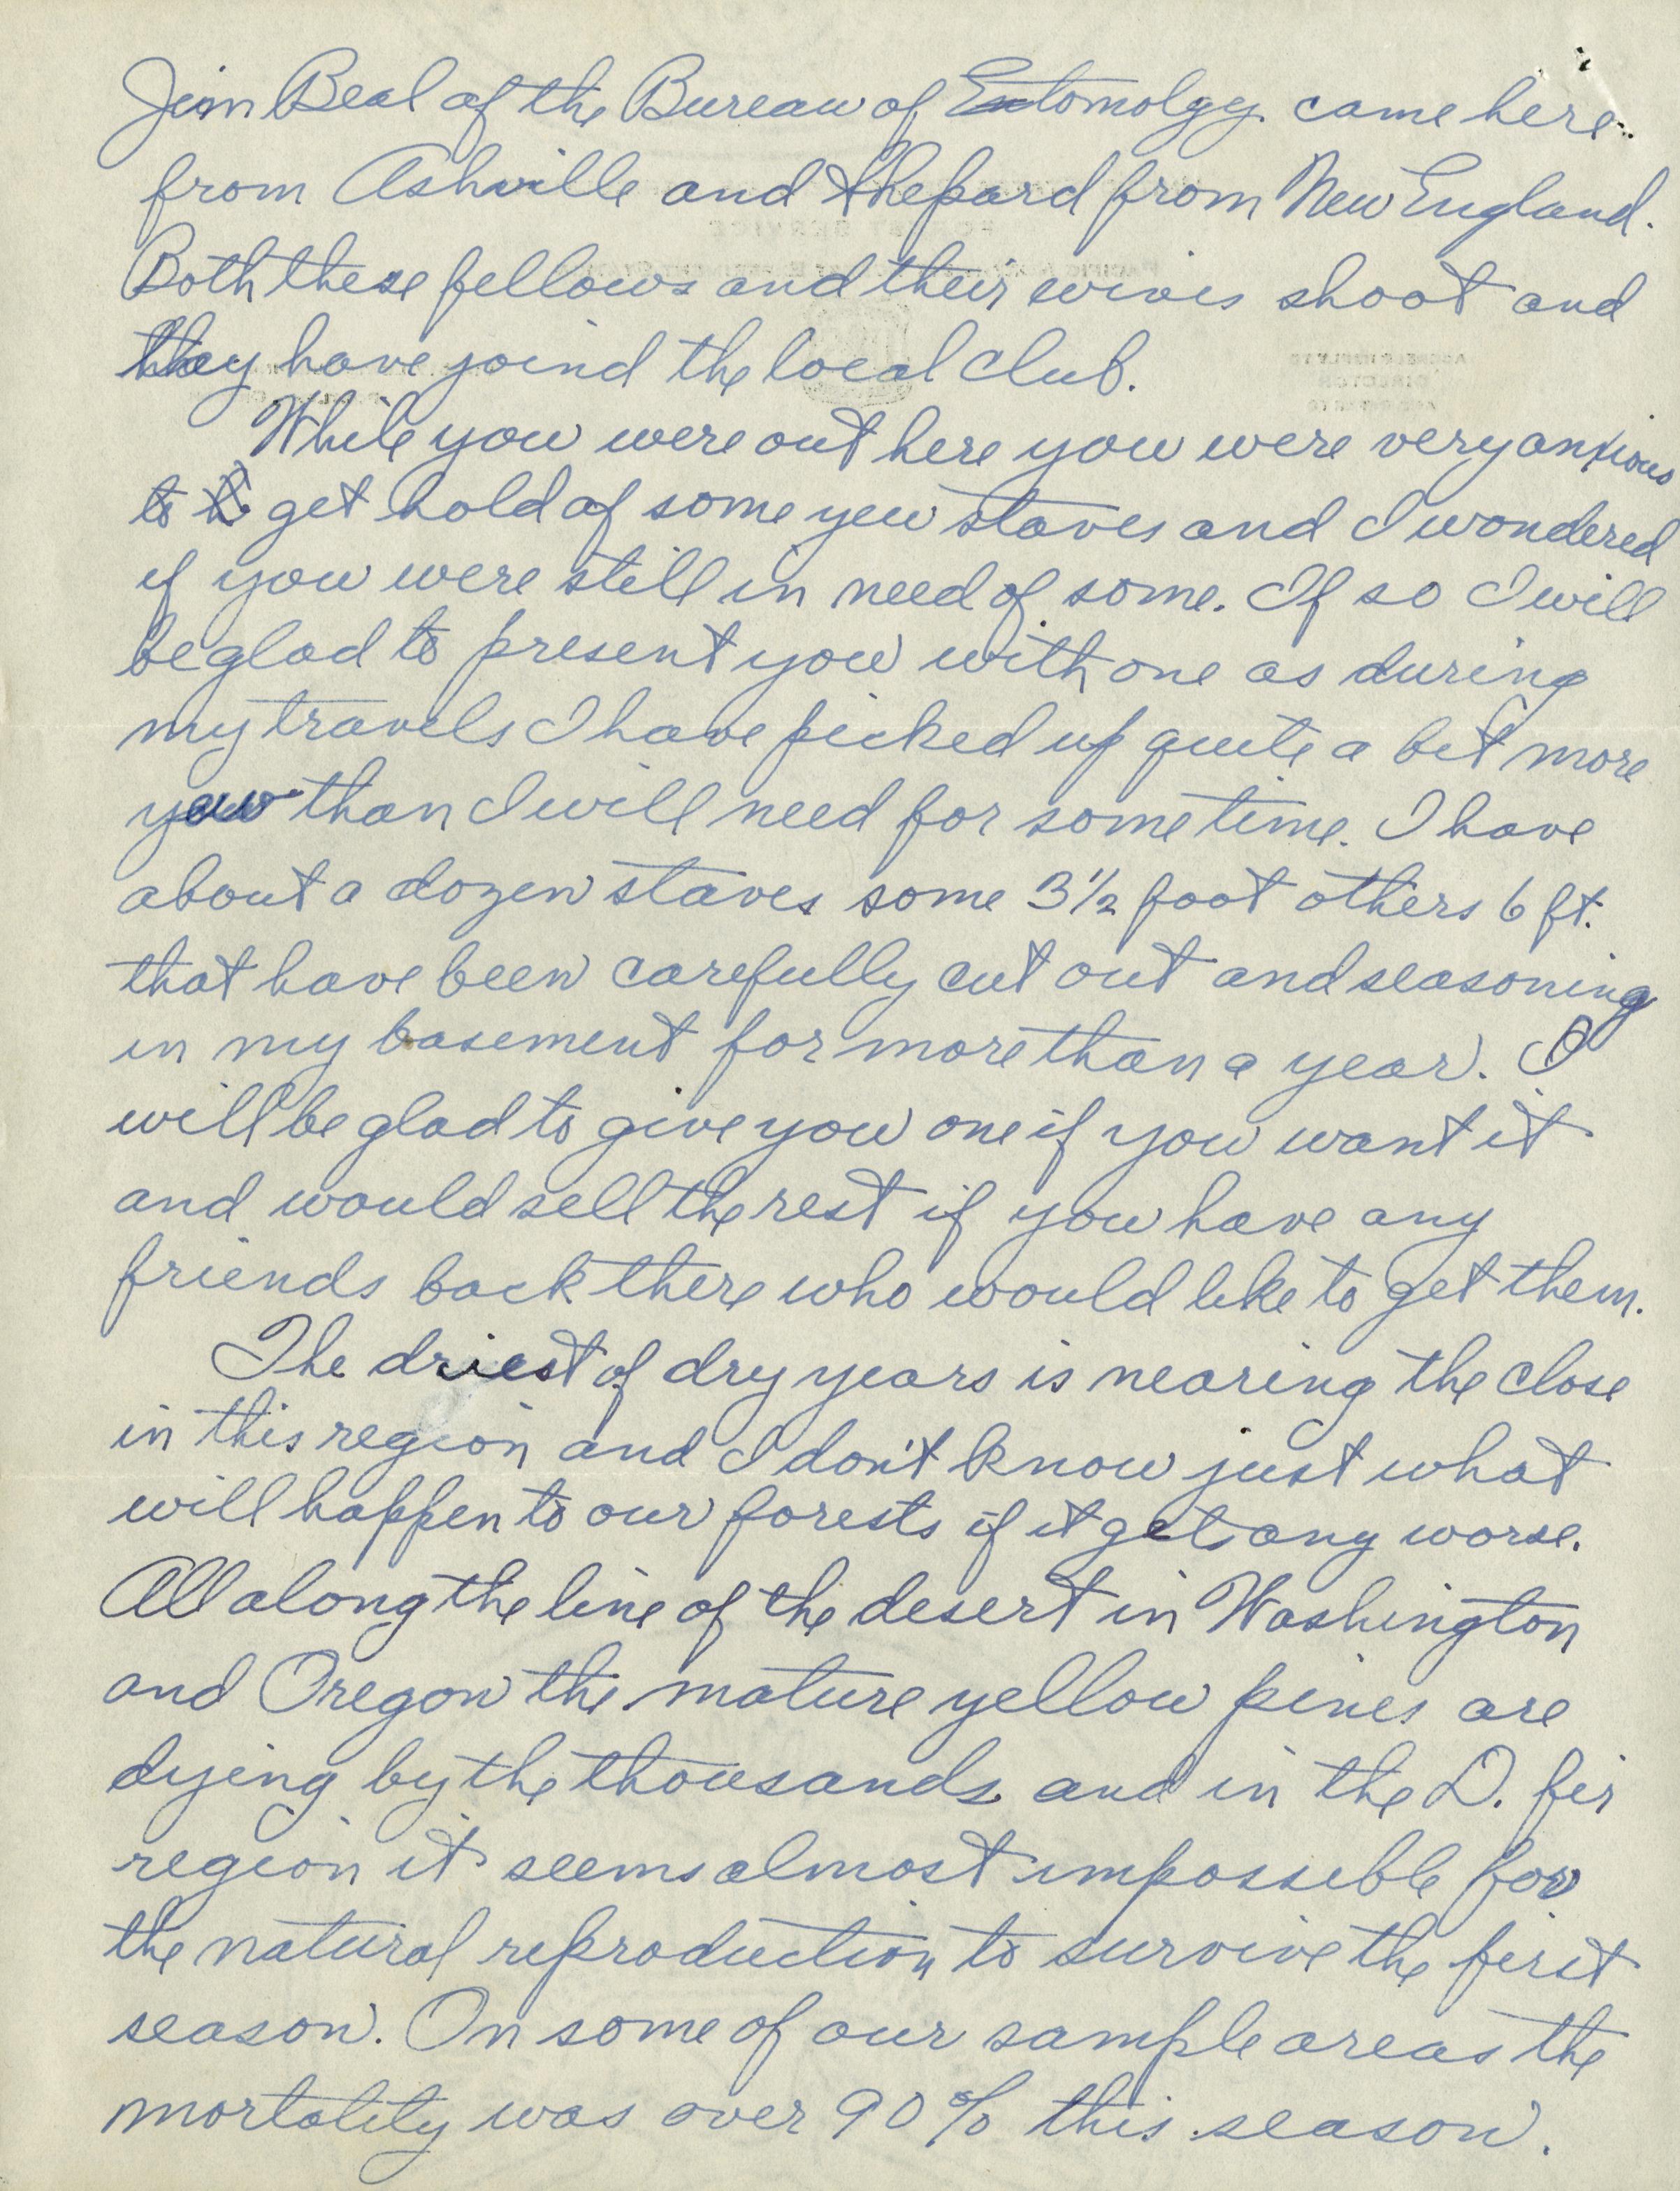 Jim Beal of the Bureau of Entomolgy came here
from Ashville and Shepard from New England.
Both these fellows and their wives shoot and
they have joind the local club.
While you were out here you were very anxious
to get hold of some yew staves and I wondered
if you were still in need of some. If so I will
be glad to present you with one as during
my travels I have picked up quite a bit more
yew than I will need for some time. I have
about a dozen staves some 3½ foot others 6 ft.
that have been carefully cut out and seasoning
in my basement for more than a year. I
will be glad to give you one if you want it
and would sell the rest if you have any
friends back there who would like to get them.
The driest of dry years is nearing the close
in this region and I don't know just what
will happen to our forests if it gets any worse.
All along the line of the desert in Washington
and Oregon the mature yellow pines are
dying by the thousands and in the D. fir
region it seems almost impossible for
the natural reproduction to survive the first
season. On some of our sample areas the
mortality was over 90% this season.